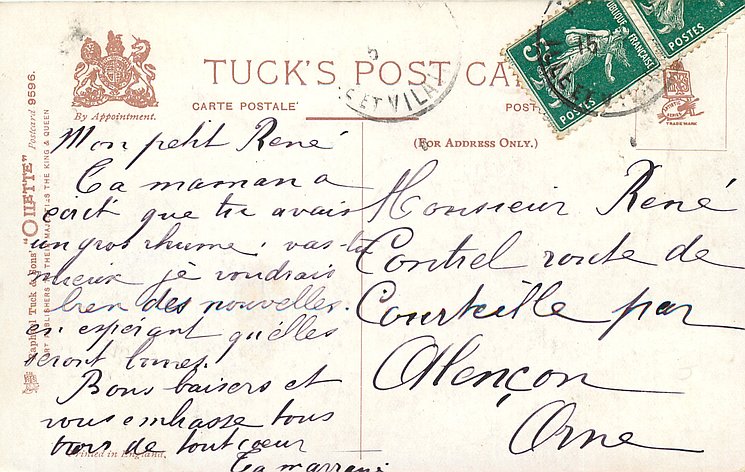 TUCK'S POST CA
CARTE POSTALE
POS
By Appointment.
(FOR ADDRESS ONLY.)
Raphael Tuck & Sons' "OILETTE" Postcard 9596.
ART PUBLISHERS TO THEIR MAJESTIES THE KING & QUEEN
Printed in England.
TRADE MARK
RÉPUBLIQUE FRANÇAISE
POSTES
POSTES
15
ILLE ET VILA
E ET VILAI
Mon petit René
Ta maman a
écrit que tu avais
un gros rhume. vas-tu
mieux je voudrais
bien des nouvelles.
en espérant qu'elles
seront bonnes.
Bons baisers et
vous embrasse tous
trois de tout coeur
Ta marraine
Monsieur René
Contrel route de
Courteille par
Alençon
Orne